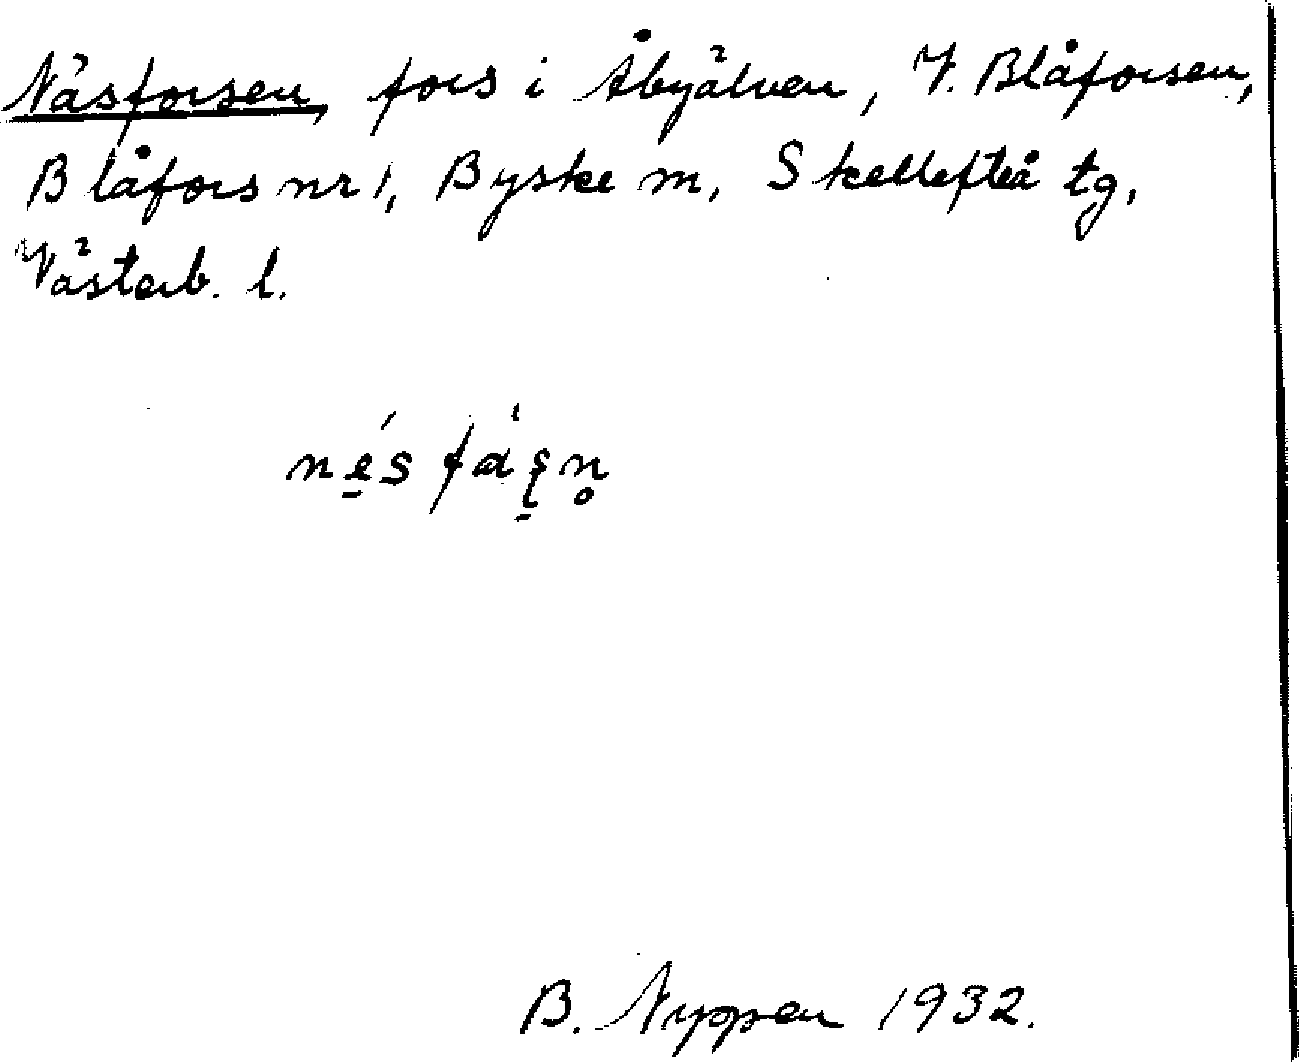 Näsforsen, fors i Åbyälven, V. Blåforsen,
Blåfors nr 1, Byske sn, Skellefteå tg,
Västerb. l.
B. Nyppen 1932.